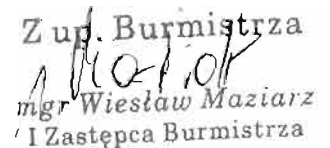 Z up. Burmistrza
mgr Wiesław Maziarz
I Zastępca Burmistrza